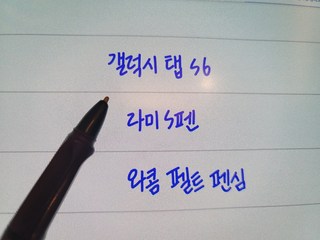 갤럭시 탭 S6
라미 S펜
와콤 펠트 펜심